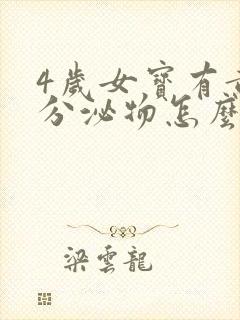 4歲女寶有
分泌物怎麼
梁雲龍